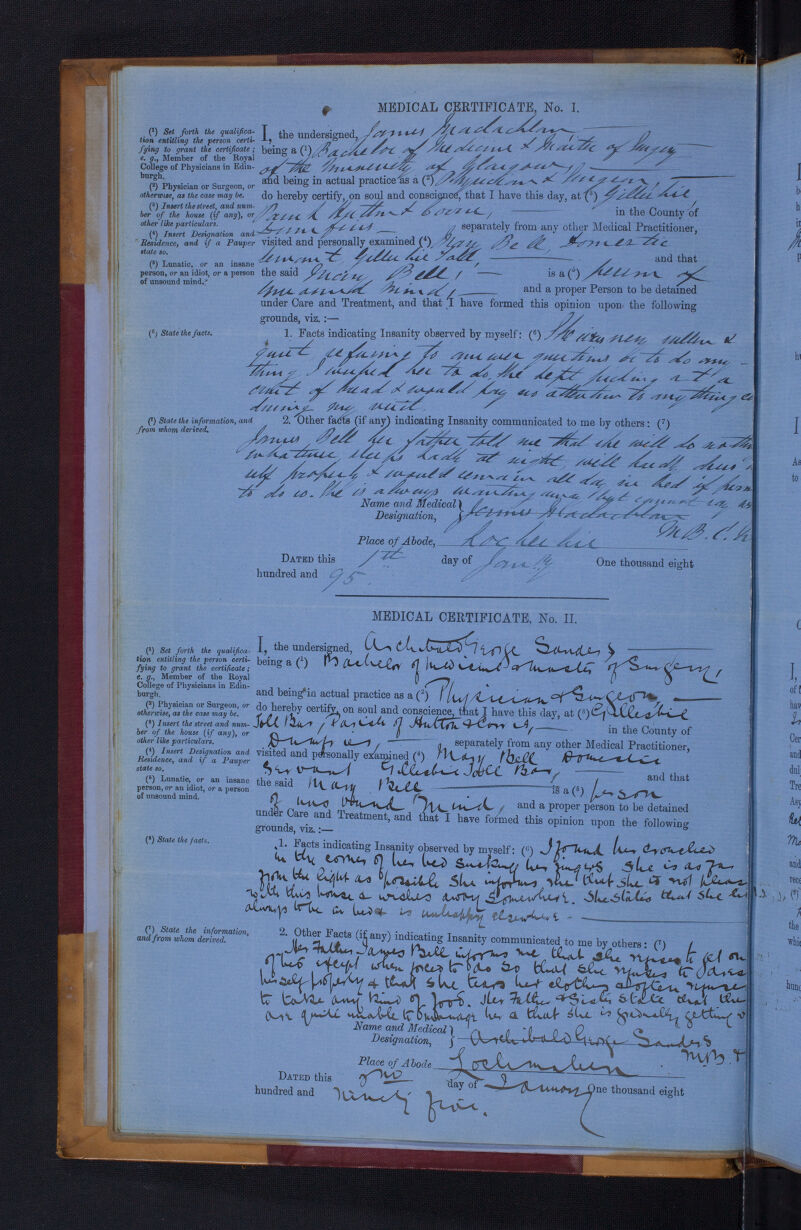 MEDICAL CERTIFICATE, No. I.
(¹) Set forth the qualifica-
tion entitling the person certi-
fying to grant the certificate;
e. g., Member of the Royal
College of Physicians in Edin-
burgh.
(²) Physician or Surgeon, or
otherwise, as the case may be.
(³) Insert the street, and num-
ber of the house (if any), or
other like particulars.
(⁴) Insert Designation and
Residence, and if a Pauper
state so.
(⁵) Lunatic, or an insane
person, or an idiot, or a person
of unsound mind.
I, the undersigned, James Maclachlan
being a (¹) Bachelor of Medicine & Master of Surgery
of the University of Glasgow
and being in actual practice as a (²) Physician & Surgeon
do hereby certify, on soul and conscience, that I have this day, at (³) Gillesbie,
Parish Hutton & Corrie, in the County of
Dumfries separately from any other Medical Practitioner,
visited and personally examined (⁴) Mary Bell, Domestic
Servant Gillesbie Toll and that
the said Mary Bell, is a (⁵) person of
unsound mind, and a proper Person to be detained
under Care and Treatment, and that I have formed this opinion upon the following
grounds, viz.:—
(⁶) State the facts.
1. Facts indicating Insanity observed by myself: (⁶) She was very sullen &
quiet refusing to answer questions or to do any-
thing I wished her to do, she kept picking at a
crust of bread & would pay no attention to anything
during my visit.
(⁷) State the information, and
from whom derived.
2. Other facts (if any) indicating Insanity communicated to me by others: (⁷)
James Bell her father told me that she will do
whatever, sleeps badly at night, will hardly dress
self properly & would remain all day in bed if
to do so. She is always wanting away but cannot say
Name and Medical
Designation, James Maclachlan
M.B. C.
Place of Abode, Lockerbie
DATED this 1st day of Jany One thousand eight
hundred and 95.
MEDICAL CERTIFICATE, No. II.
(¹) Set forth the qualifica-
tion entitling the person certi-
fying to grant the certificate;
e. g., Member of the Royal
College of Physicians in Edin-
burgh.
(²) Physician or Surgeon, or
otherwise, as the case may be.
(³) Insert the street and num-
ber of the house (if any), or
other like particulars.
(⁴) Insert Designation and
Residence, and if a Pauper
state so.
(⁵) Lunatic, or an insane
person, or an idiot, or a person
of unsound mind.
I, the undersigned, Archibald George Sanders
being a (¹) Bachelor of medicine & master of Surgery,
and being in actual practice as a (²) Physician & Surgeon,
do hereby certify, on soul and conscience, that I have this day, at (³) Gillesbie
Toll Bar, Parish of Hutton & Corrie, in the County of
Dumfries, separately from any other Medical Practitioner,
visited and personally examined (⁴) Mary Bell Domestic
Servant Gillesbie Toll Bar, and that
the said Mary Bell is a (⁵) person
of unsound mind, and a proper person to be detained
under Care and Treatment, and that I have formed this opinion upon the following
grounds, viz.:—
(⁶) State the facts.
1. Facts indicating Insanity observed by myself: (⁶) I found her crouched
in the corner of her bed sucking her fingers She is as far
from the light as possible She informs me that she is not
with this house & wishes away somewhere. She states that she
always to be in bed & is unhappy elsewhere.
(⁷) State the information,
and from whom derived.
2. Other Facts (if any) indicating Insanity communicated to me by others: (⁷)
Her Father James Bell informs me that she refuses to get
of bed except when forced to do so that she refuses to dress
herself properly & that she tears her clothes & often
to take any kind of food. Her Father & Sister state that they
are quite unable to manage her & that she is gradually getting
Name and Medical
Designation, Archibald George Sanders
M.B. &
Place of Abode Lochmaben
DATED this 2nd day of January One thousand eight
hundred and ninety five.